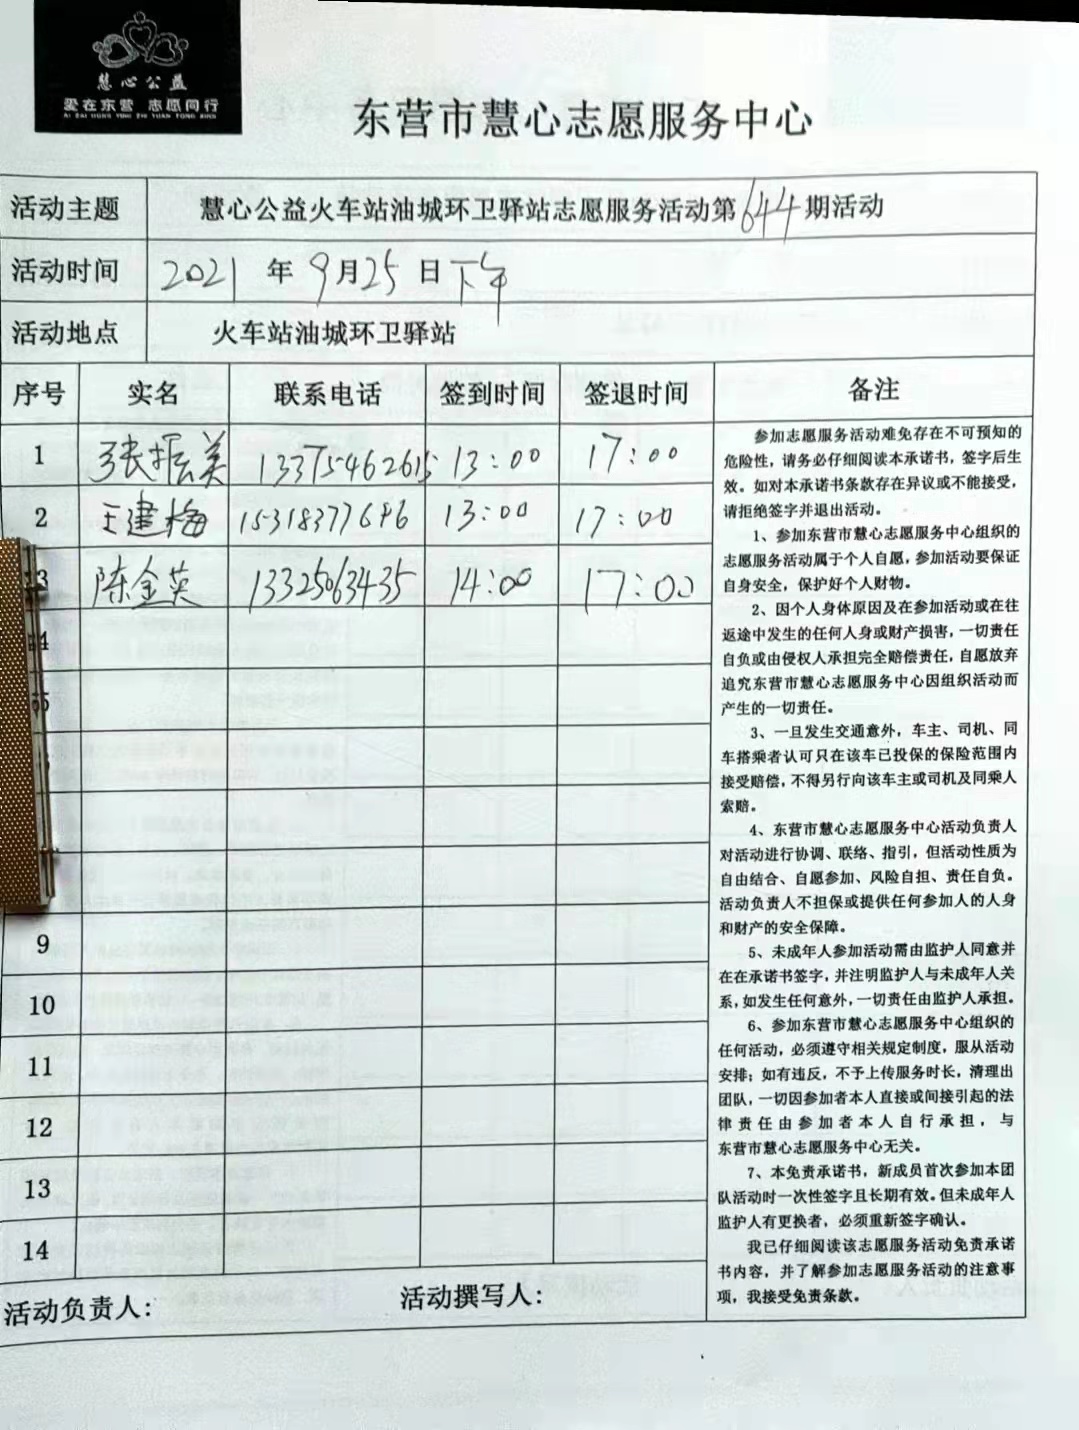 慧心公益
爱在东营 志愿同行
AI ZAI DONG YING ZHI YUAN TONG XING
东营市慧心志愿服务中心
活动主题 慧心公益火车站油城环卫驿站志愿服务活动第644期活动
活动时间 2021 年 9月25日下午
活动地点 火车站油城环卫驿站
序号 实名 联系电话 签到时间 签退时间 备注
1 张振美 13375462615 13:00 17:00
2 王建梅 15318377696 13:00 17:00
3 陈金英 13325063435 14:00 17:00
4
5
9
10
11
12
13
14
参加志愿服务活动难免存在不可预知的
危险性，请务必仔细阅读本承诺书，签字后生
效。如对本承诺书条款存在异议或不能接受，
请拒绝签字并退出活动。
1、参加东营市慧心志愿服务中心组织的
志愿服务活动属于个人自愿，参加活动要保证
自身安全，保护好个人财物。
2、因个人身体原因及在参加活动或在往
返途中发生的任何人身或财产损害，一切责任
自负或由侵权人承担完全赔偿责任，自愿放弃
追究东营市慧心志愿服务中心因组织活动而
产生的一切责任。
3、一旦发生交通意外，车主、司机、同
车搭乘者认可只在该车已投保的保险范围内
接受赔偿，不得另行向该车主或司机及同乘人
索赔。
4、东营市慧心志愿服务中心活动负责人
对活动进行协调、联络、指引，但活动性质为
自由结合、自愿参加、风险自担、责任自负。
活动负责人不担保或提供任何参加人的人身
和财产的安全保障。
5、未成年人参加活动需由监护人同意并
在在承诺书签字，并注明监护人与未成年人关
系，如发生任何意外，一切责任由监护人承担。
6、参加东营市慧心志愿服务中心组织的
任何活动，必须遵守相关规定制度，服从活动
安排；如有违反，不予上传服务时长，清理出
团队，一切因参加者本人直接或间接引起的法
律责任由参加者本人自行承担，与
东营市慧心志愿服务中心无关。
7、本免责承诺书，新成员首次参加本团
队活动时一次性签字且长期有效。但未成年人
监护人有更换者，必须重新签字确认。
我已仔细阅读该志愿服务活动免责承诺
书内容，并了解参加志愿服务活动的注意事
项，我接受免责条款。
活动负责人： 活动撰写人：